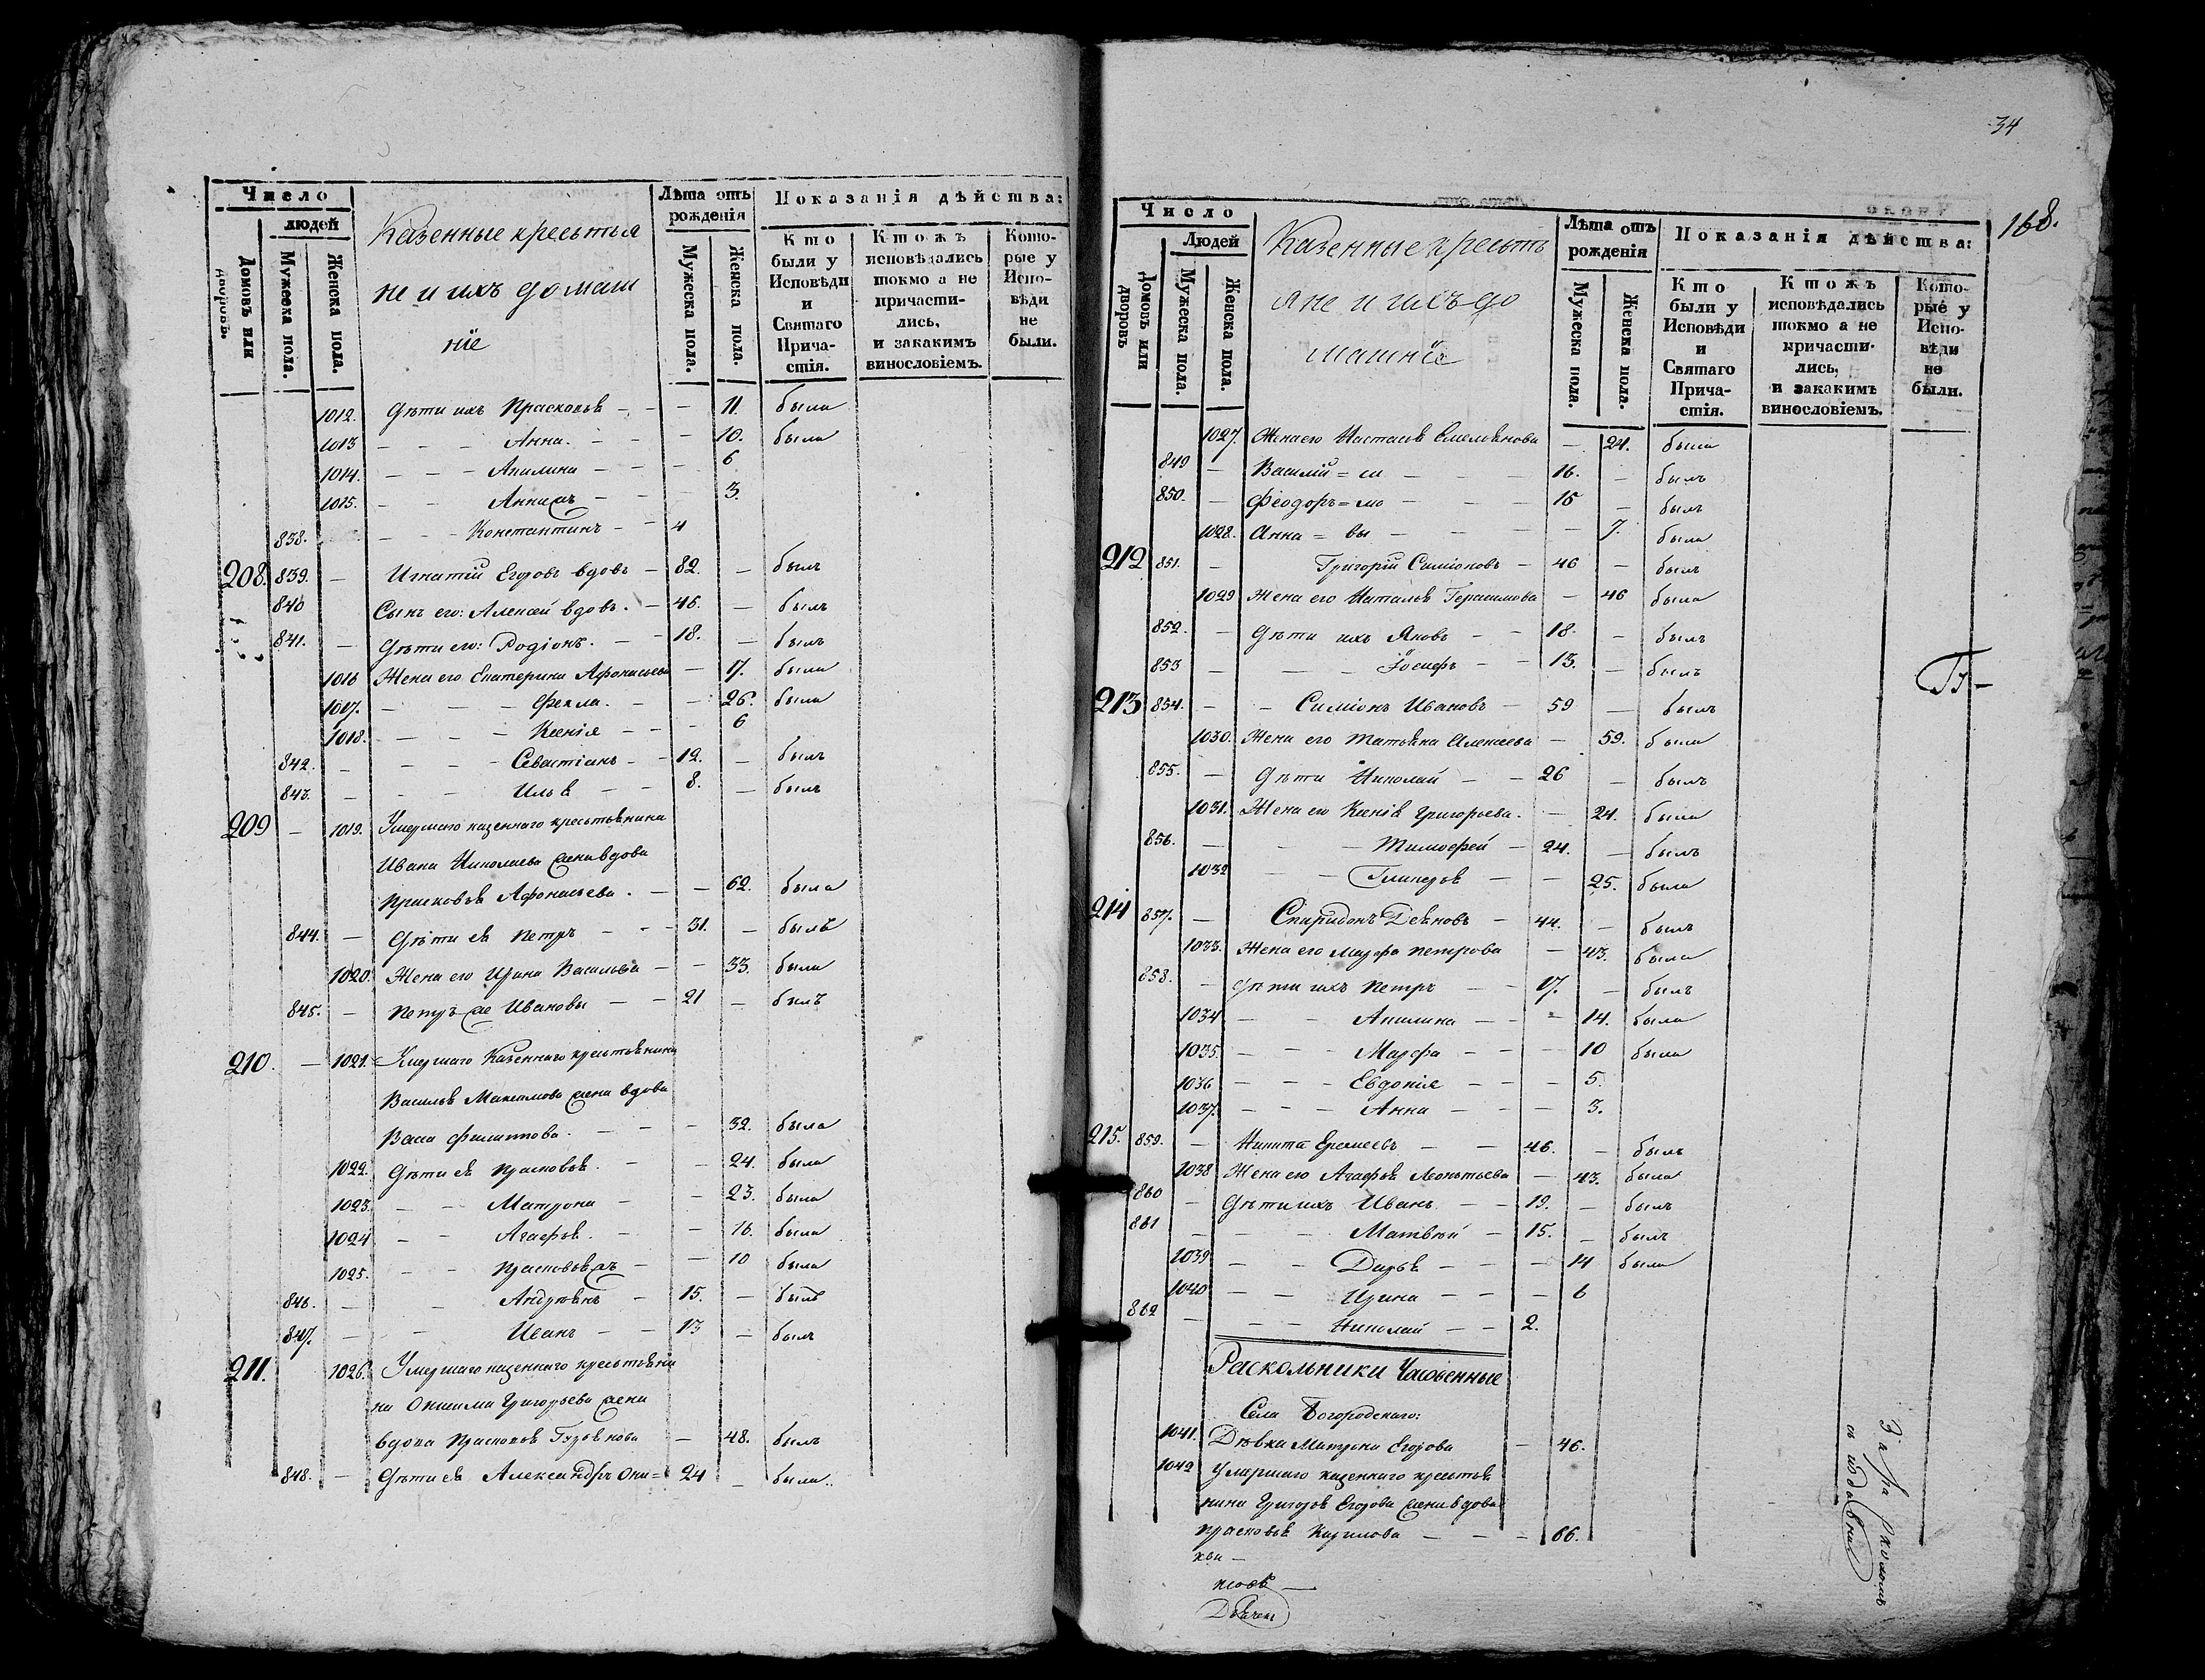 Число
людей
Домовъ или дворовъ.
Мужеска пола.
Женска пола.
Казенные крестья
не и ихъ домаш
ніе
Лѣта отъ рожденія
Мужеска пола.
Женска пола.
Показанія дѣйства:
Кто были у Исповѣди и Святаго Причастія.
Ктожъ исповѣдались токмо а не причастились, и закакимъ винословіемъ.
Которые у Исповѣди не были.
1012. Дѣти ихъ Прасковья - - - 11. была
1013 - - - Анна. - - - 10. была
1014. - - - Акилина - - - 6
1015. - - Анна - - - 3.
838. - - - Константинъ - - 4
208. 839. - Игнатій Егоровъ вдовъ - 82. - былъ
840 Сынъ его: Алексей вдовъ. - 46. - былъ
841. - Дѣти его: Родіонъ. - - 18. - былъ
1016 Жена его Екатерина Афонасьева - 17. была
1017. - - - Фекла. - - 26. была
1018. - - - Ксенія - - - 6
842. - - - - Севастіанъ - - 12. - былъ
843. - - - Илья - - 8. - былъ
209 - 1019. Умершаго казеннаго крестьянина
Ивана Николаева жена вдова
Прасковья Афонасьева. - - 62. была
844. - Дѣти ея Петръ - - - 31. - былъ
1020. Жена его Ирина Васильева - - 33. была
845. - Петръ же Ивановы - - 21 - былъ
210. - 1021. Умершаго Казеннаго крестьянина
Василья Максимова жена вдова
Васа Филипова. - - - 32. была
1022. Дѣти ея Прасковья. - - 24. была
1023. - - Матрона - - 23. была
1024 - - Агафья. - - 16. была
1025. - - Прасковья жъ - - 10 была
846. - - Андреянъ - 15. - былъ
847. - - Иванъ - - 13 - былъ
211. 1026. Умершаго казеннаго крестьяни
на Онисима Григорьева жена
вдова Прасковья Гурьянова - 48. былъ
848. - Дѣти ея Александръ Они= 24 - была..
34
168.
Число
Людей
Домовъ или дворовъ
Мужеска пола.
Женска пола.
Казенные крестья
яне и ихъ до
машніе
Лѣта отъ рожденія
Мужеска пола.
Женска пола.
Показанія дѣйства:
Кто были у Исповѣди и Святаго Причастія.
Ктожъ исповѣдались токмо а не причастились, и закакимъ винословіемъ.
Которые у Исповѣди не были.
1027. Жена его Настасья Емельянова - 24. была
849 - Василій = си - - - 16. - былъ
850. - Феодоръ = мо - - - 15 - былъ
1028. Анна = вы - - - - 7. была
212 851. - Григорій Симіоновъ - 46 - былъ
1029 Жена его Наталья Герасимова - 46 была
852. - Дѣти ихъ Яковъ - - 18. - былъ
853 - - - Іосифъ - - 13. - былъ
213 854. - - Симіонъ Ивановъ - 59 - былъ
1030. Жена его Татьяна Алексеева - 59. была
855. - Дѣти Николай - - 26 - былъ
1031. Жена его Ксенія Григорьева. - 24. была
856. - - - Тимофей - 24. - былъ
1032 - - Гликерья - - 25. была
214 857. - Спиридонъ Деяновъ - 44. - былъ
1033. Жена его Марфа Петрова - 43. была
858. - Дѣти ихъ Петръ - - 17. - былъ
1034 - - Акилина - - - 14. была
1035. - - - Марфа - - - 10 была
1036 - - - Евдокія - - - 5.
1037. - - - Анна - - - 3.
215. 859. - Никита Еремеевъ - - 46. - былъ
1038 Жена его Агафья Леонтьева - 43. была
860 - Дѣти ихъ Иванъ - - 19. - былъ
861 - - - Матвѣй - 15. - былъ
1039 - - Дарья - - - 14 была
1040 - - Ирина - - - 6
862 - - - Николай - - 2.
Раскольники Часовенные
Села Богородскаго:
1041. Дѣвка Матрона Егорова - 46.
1042 Умершаго казеннаго крестья
нина Григорья Егорова жена вдова
Прасковья Кирилова - - - 66.
За расколомъ